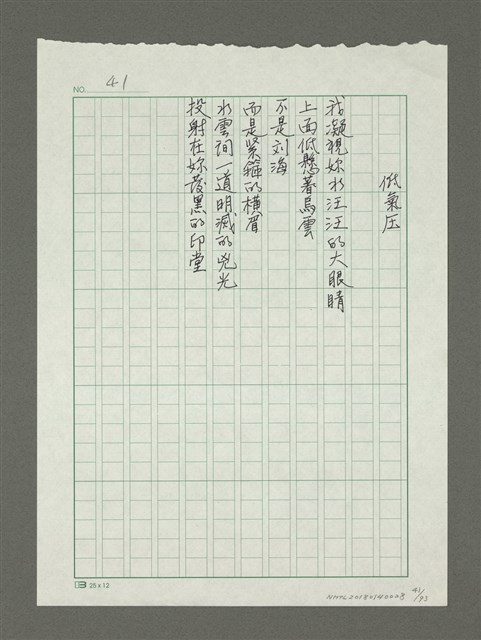 NO. 41
低氣压
我凝視妳水汪汪的大眼睛
上面低懸著烏雲
不是刘海
而是緊箍的橫眉
水雲间一道明滅的兇光
投射在妳發黑的印堂
25 x 12
NMTL20180140008
41/93